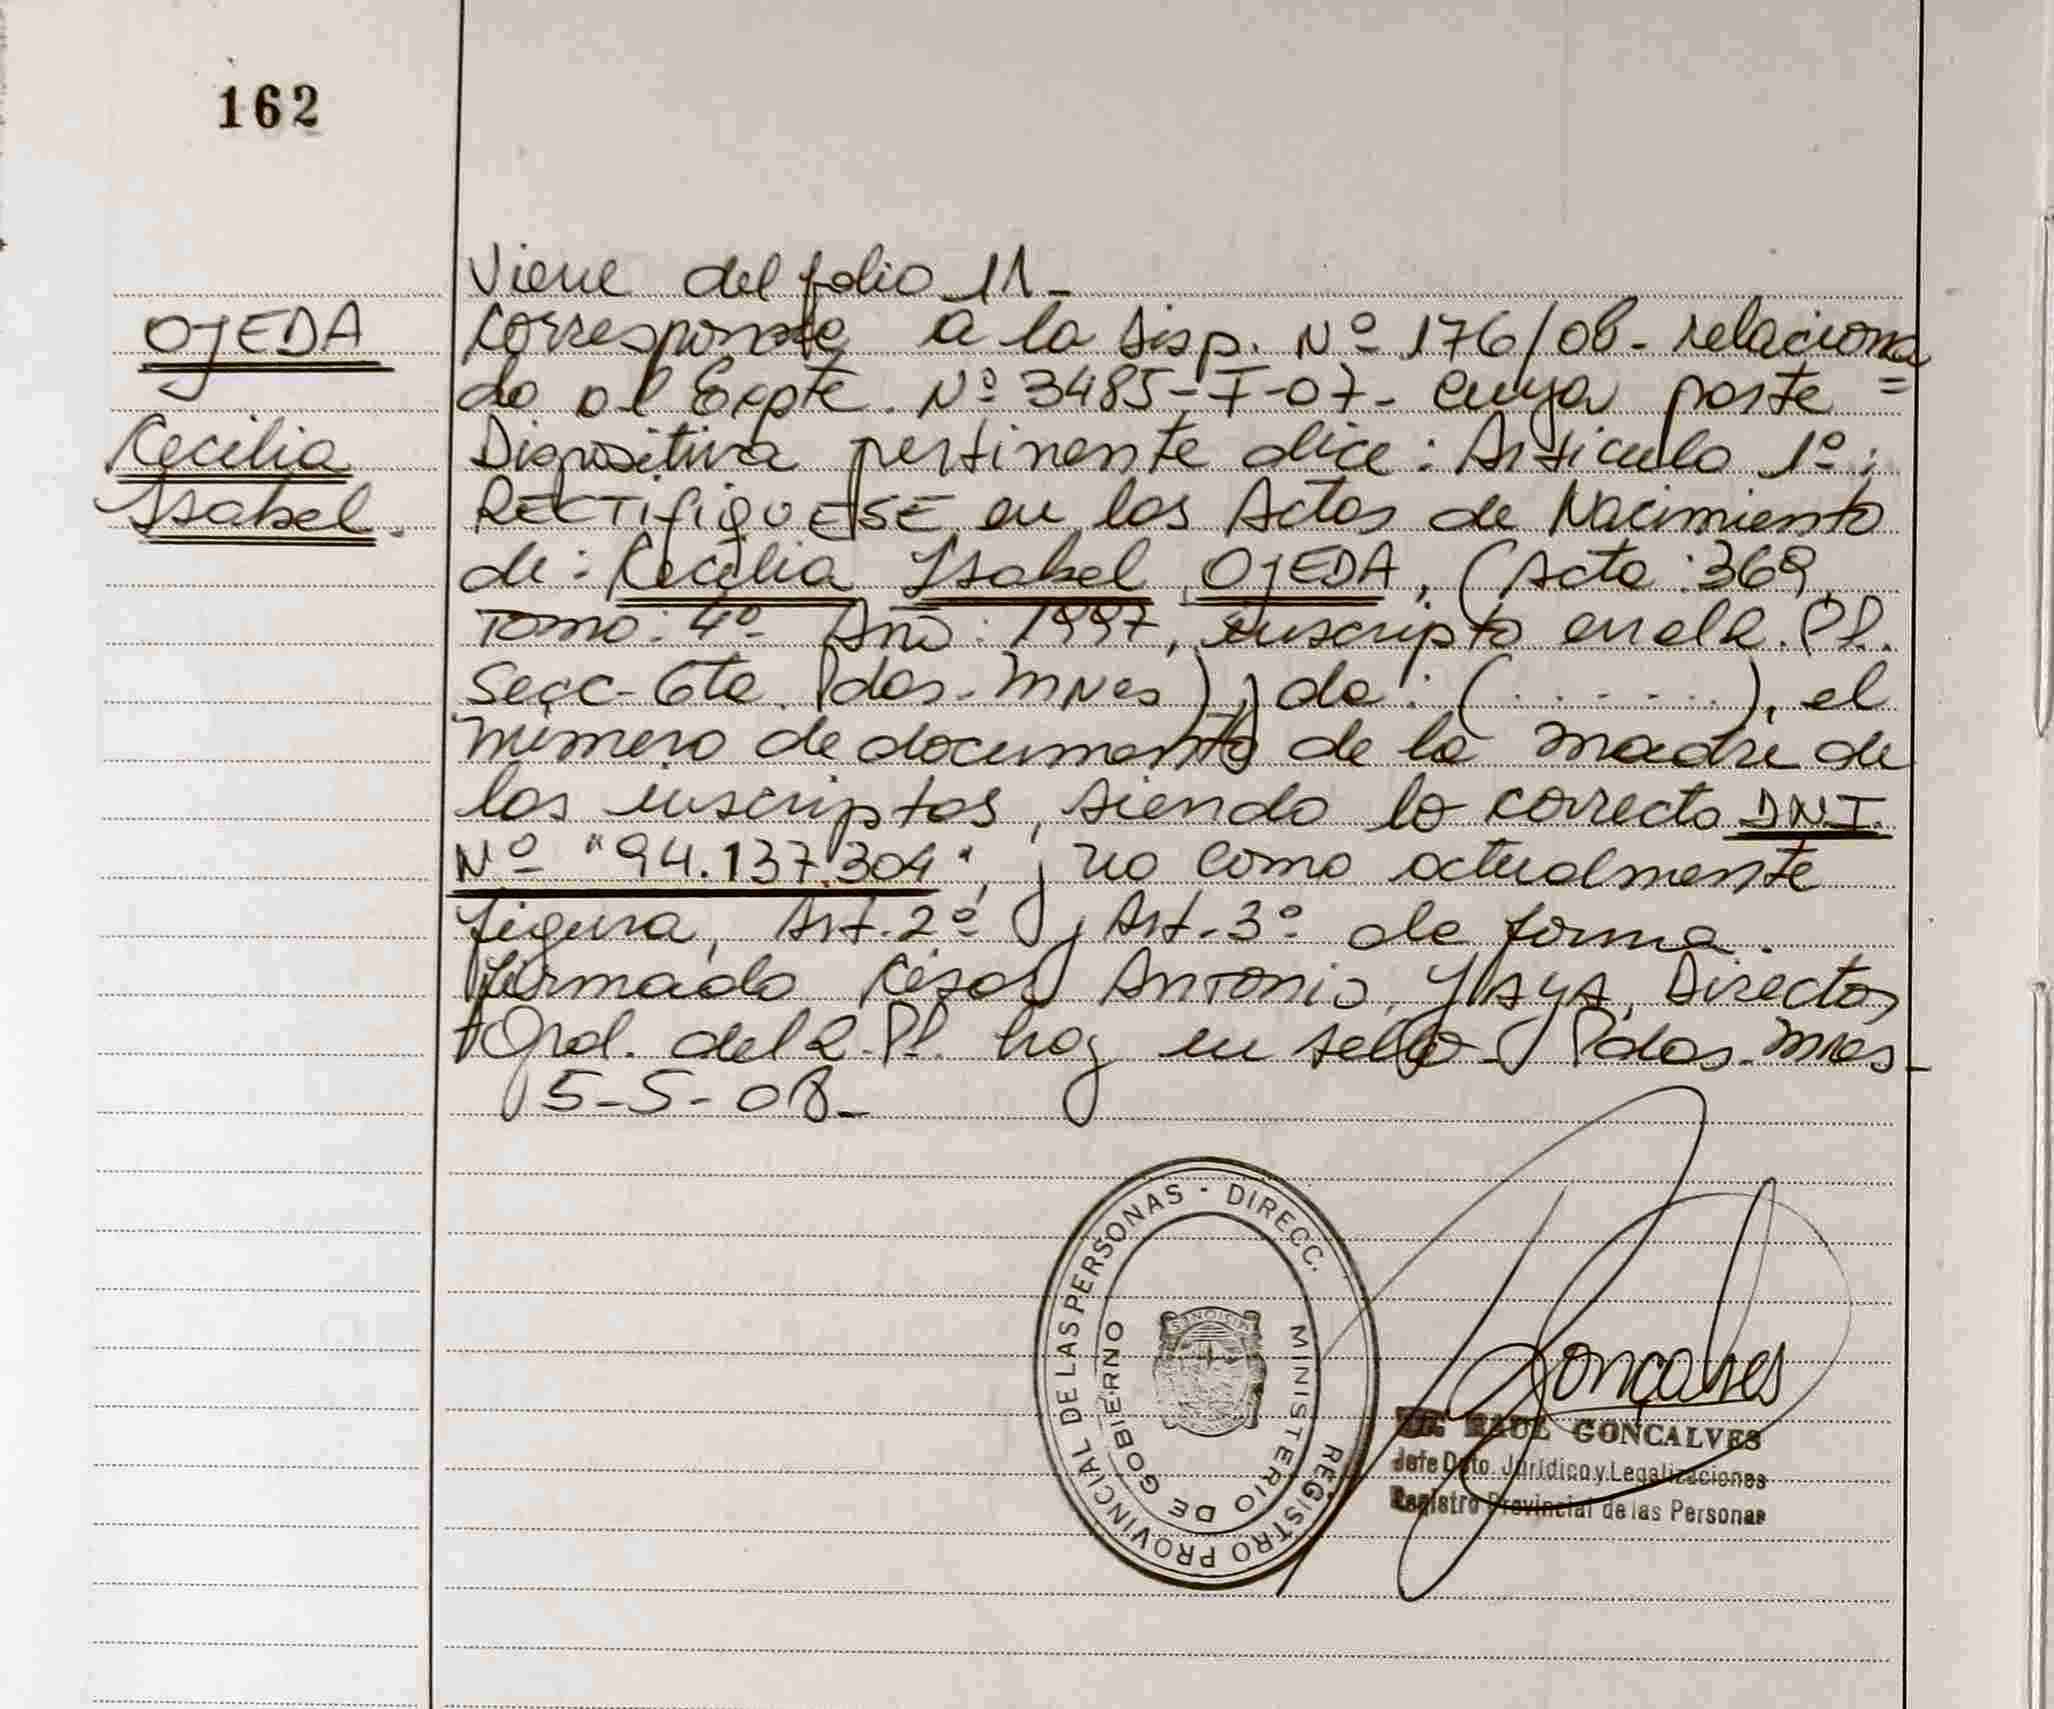 162
OJEDA
Cecilia
Isabel.
Viene del folio 11-
Corresponde a la Disp. Nº 176/08- relaciona
do al Expte. Nº 3485-I-07- cuya parte =
Dispositiva pertinente dice: Articulo 1º:
RECTIFIQUESE en las Actas de Nacimiento
de: Cecilia Isabel OJEDA, (Acta: 369
Tomo: 4º- Año: 1997, inscripta en el R.P.P.
Secc- 6ta. Pdas-Mnes) y de: (.......), el
número de documento de la madre de
los inscriptos, siendo lo correcto DNI.
Nº "94.137.304", y no como actualmente
figura, Art. 2º y Art. 3º de forma.
Firmado César Antonio Ysaya, Director
Gral. del R.P.P. hay un sello- Pdas-Mnes-
5-5-08-
REGISTRO PROVINCIAL DE LAS PERSONAS - DIRECC.
MINISTERIO DE GOBIERNO
MISIONES
Goncalves
RAUL GONCALVES
Jefe Dpto. Jurídico y Legalizaciones
Registro Provincial de las Personas